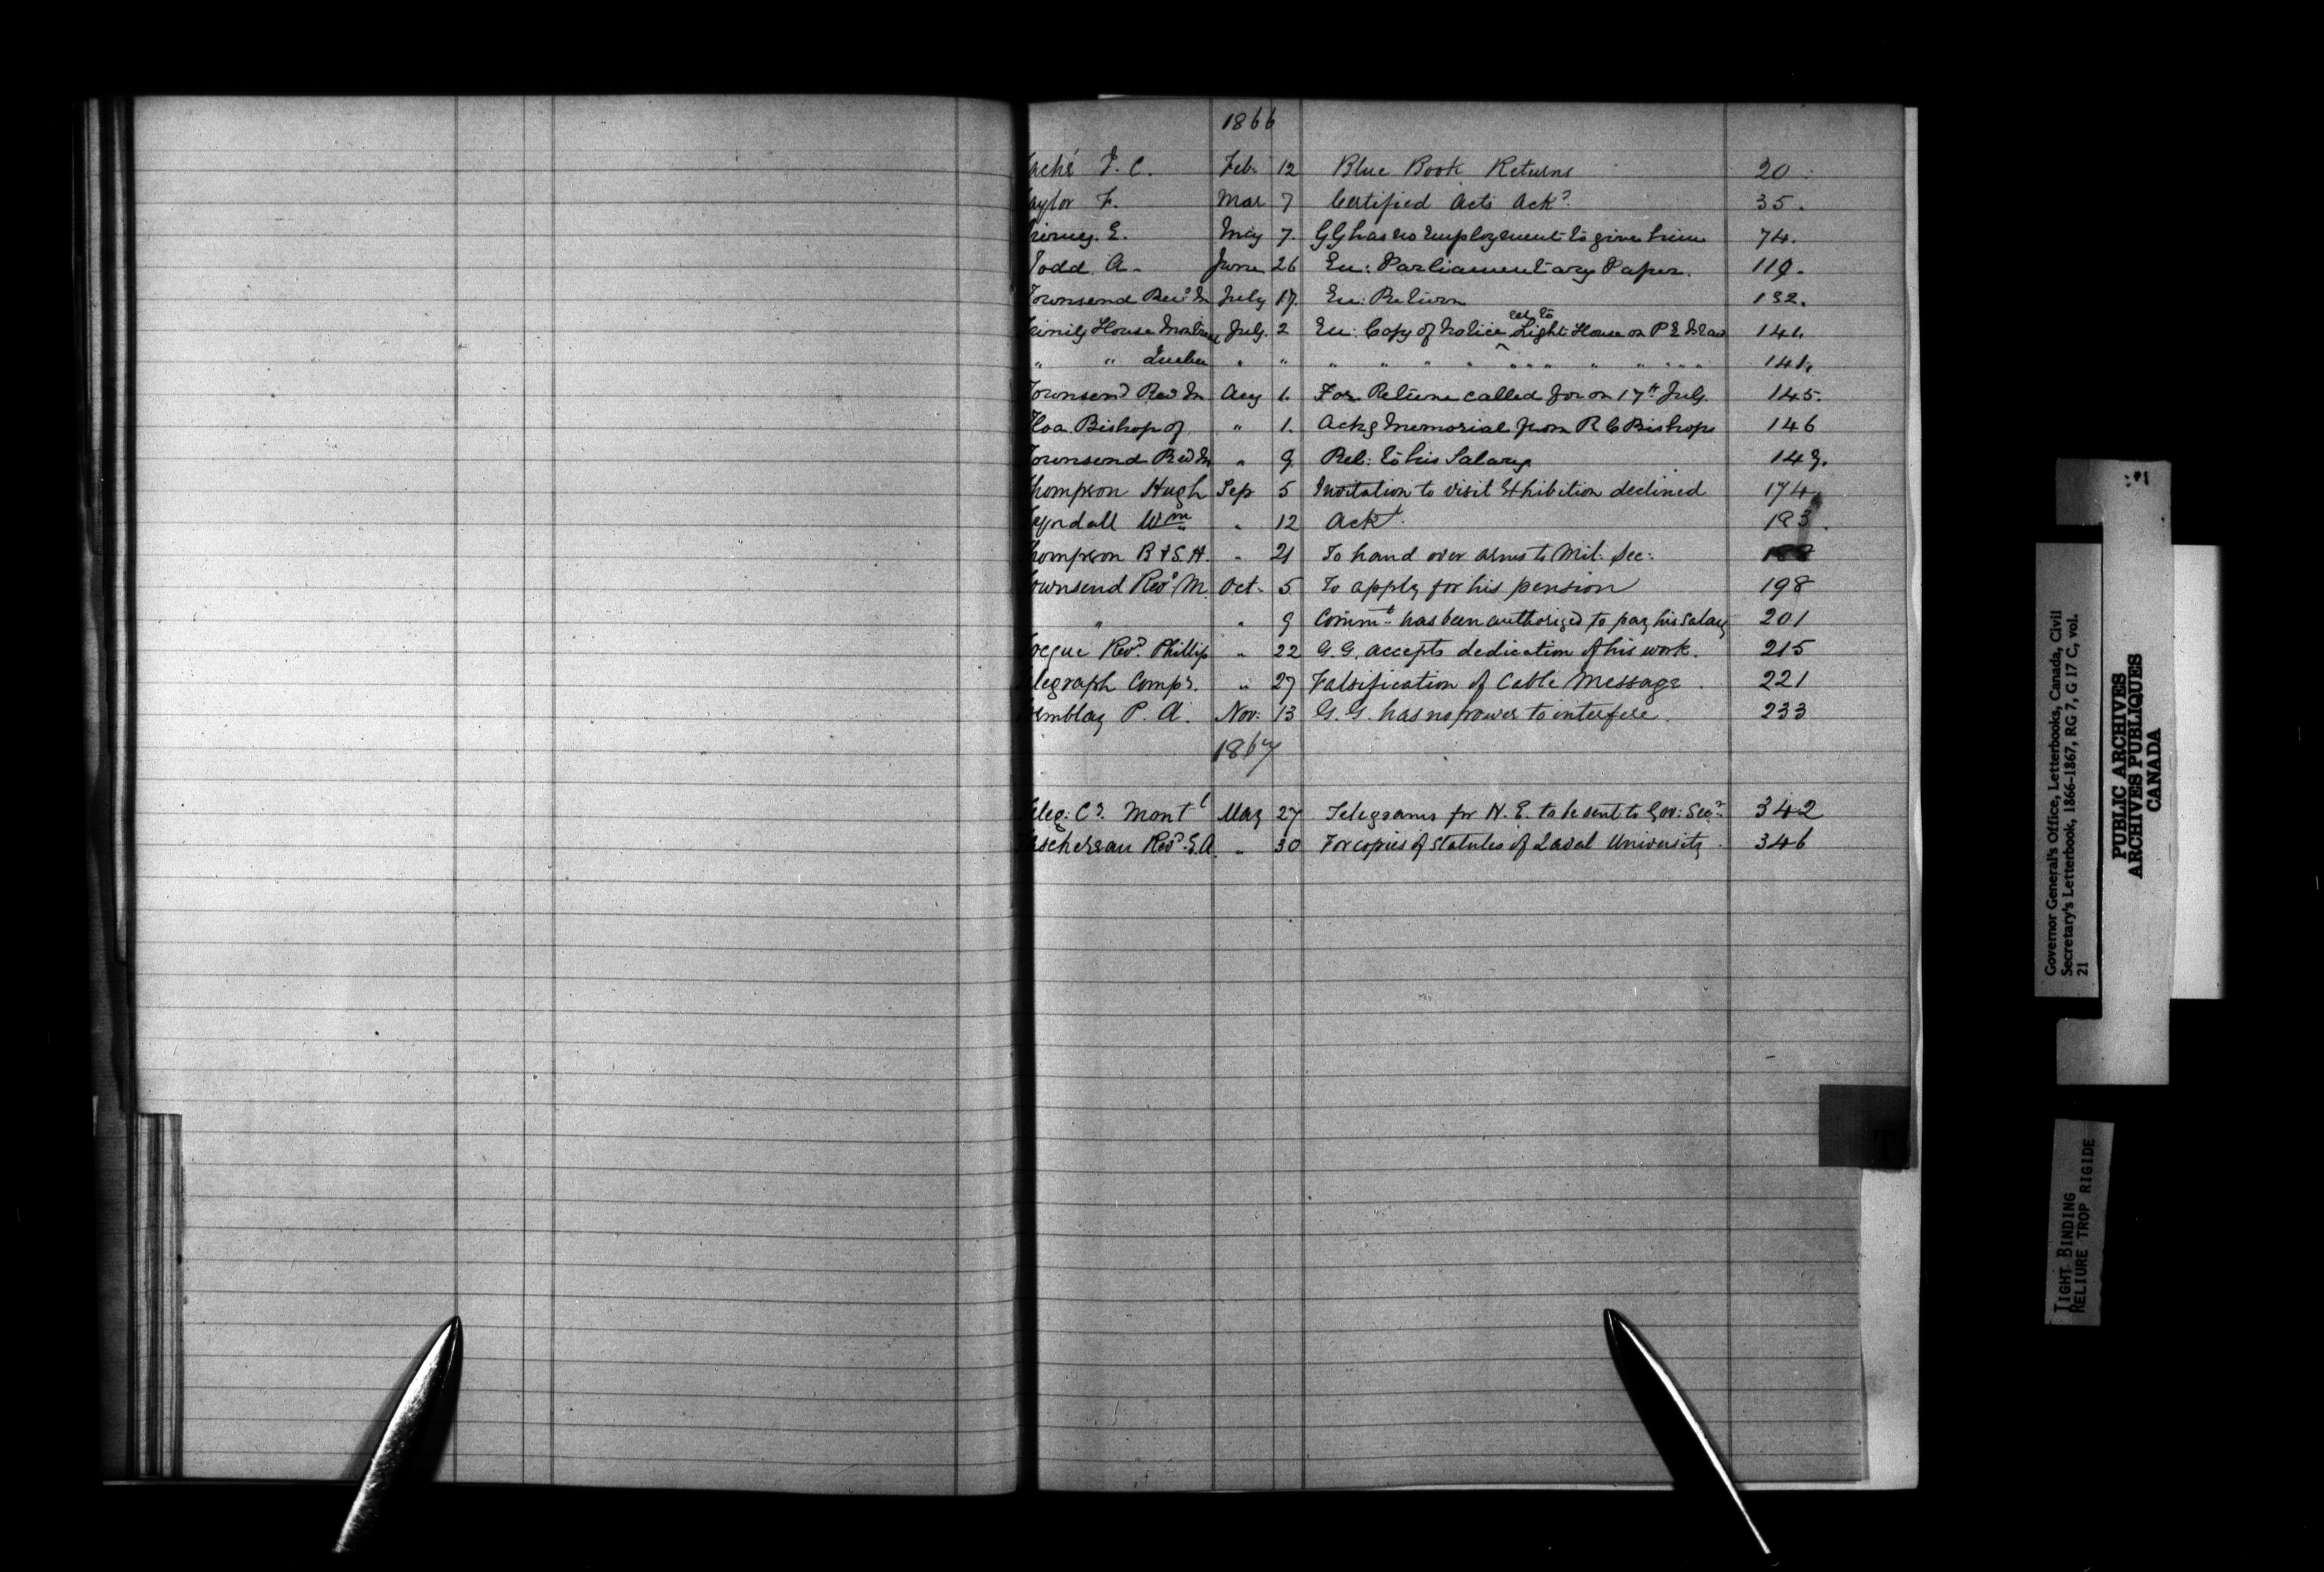 1866
Taché J. C. Feb. 12 Blue Book Returns 20
aylor F. Mar 7 Certified Acts Ackd. 35.
E. May 7. GG has no Employment to give him 74.
Todd A. June 26 En: Parliamentary Paper. 119.
Townsend Revd M July 17. En: Return 132.
Trinity House Montreal July. 2 En: Copy of Notice rel: to Light House on P E Island 141.
" " Quebec " " " " " " " " " " " " " 141.
Townsend Revd M Aug 1. For Return called for on 17th July. 145.
Tloa. Bishop of " 1. Ackg Memorial from R C Bishops 146
Townsend Revd M " 9 Rel: to his Salary 149.
hompson Hugh Sep 5 Invitation to visit Exhibition declined 174
yndall Wm " 12 Ackd. 183.
hompson B & S. H. " 21 To hand over arms to Mil: Sec: 188
ownsend Revd M. Oct. 5 To apply for his pension 198
" " 9 Commt has been authorized to pay his Salary 201
ocque Revd. Phillip " 22 G. G. accepts dedication of his work. 215
legraph Compy. " 27 Falsification of Cable Message. 221
emblay P. A. Nov: 13 G. G. has no power to interfere. 233
1867
eleg: Co. Montl May 27 Telegrams for H. E. to be sent to Gov: Secy. 342
aschereau Revd. E. A. " 30 For copies of Statutes of Laval University. 346
T
Governor General's Office, Letterbooks, Canada, Civil
Secretary's Letterbook, 1866-1867, RG 7, G 17 C, vol.
21
PUBLIC ARCHIVES
ARCHIVES PUBLIQUES
CANADA
TIGHT BINDING
RELIURE TROP RIGIDE